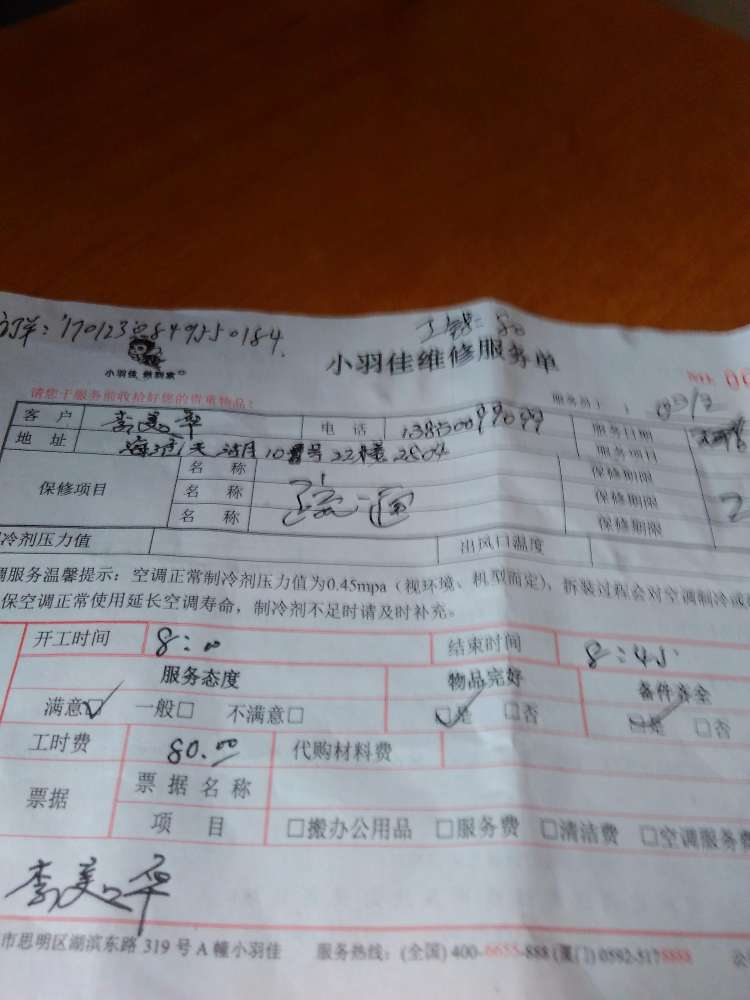 订单:1701230849550184
小羽佳 做到家
小羽佳维修服务单
请您于服务前收拾好您的贵重物品!
客户 李美华 电话 服务日期
地址 号22楼2504 服务项目
保修项目 名称 疏通 保修期限
名称 保修期限
名称 保修期限
冷剂压力值 出风口温度
调服务温馨提示:空调正常制冷剂压力值为0.45mpa(视环境、机型而定),拆装过程会对空调制冷或
保空调正常使用延长空调寿命,制冷剂不足时请及时补充。
开工时间 8:00 结束时间 8:45
服务态度 物品完好 备件齐全
满意☑ 一般□ 不满意□ ☑是 □否 ☑是 □否
工时费 80.00 代购材料费
票据 票据名称
项目 □搬办公用品 □服务费 □清洁费 □空调服务费
李美华
市思明区湖滨东路 319 号 A 幢小羽佳 服务热线:(全国) 400-6655-888 (厦门) 0592-5178888